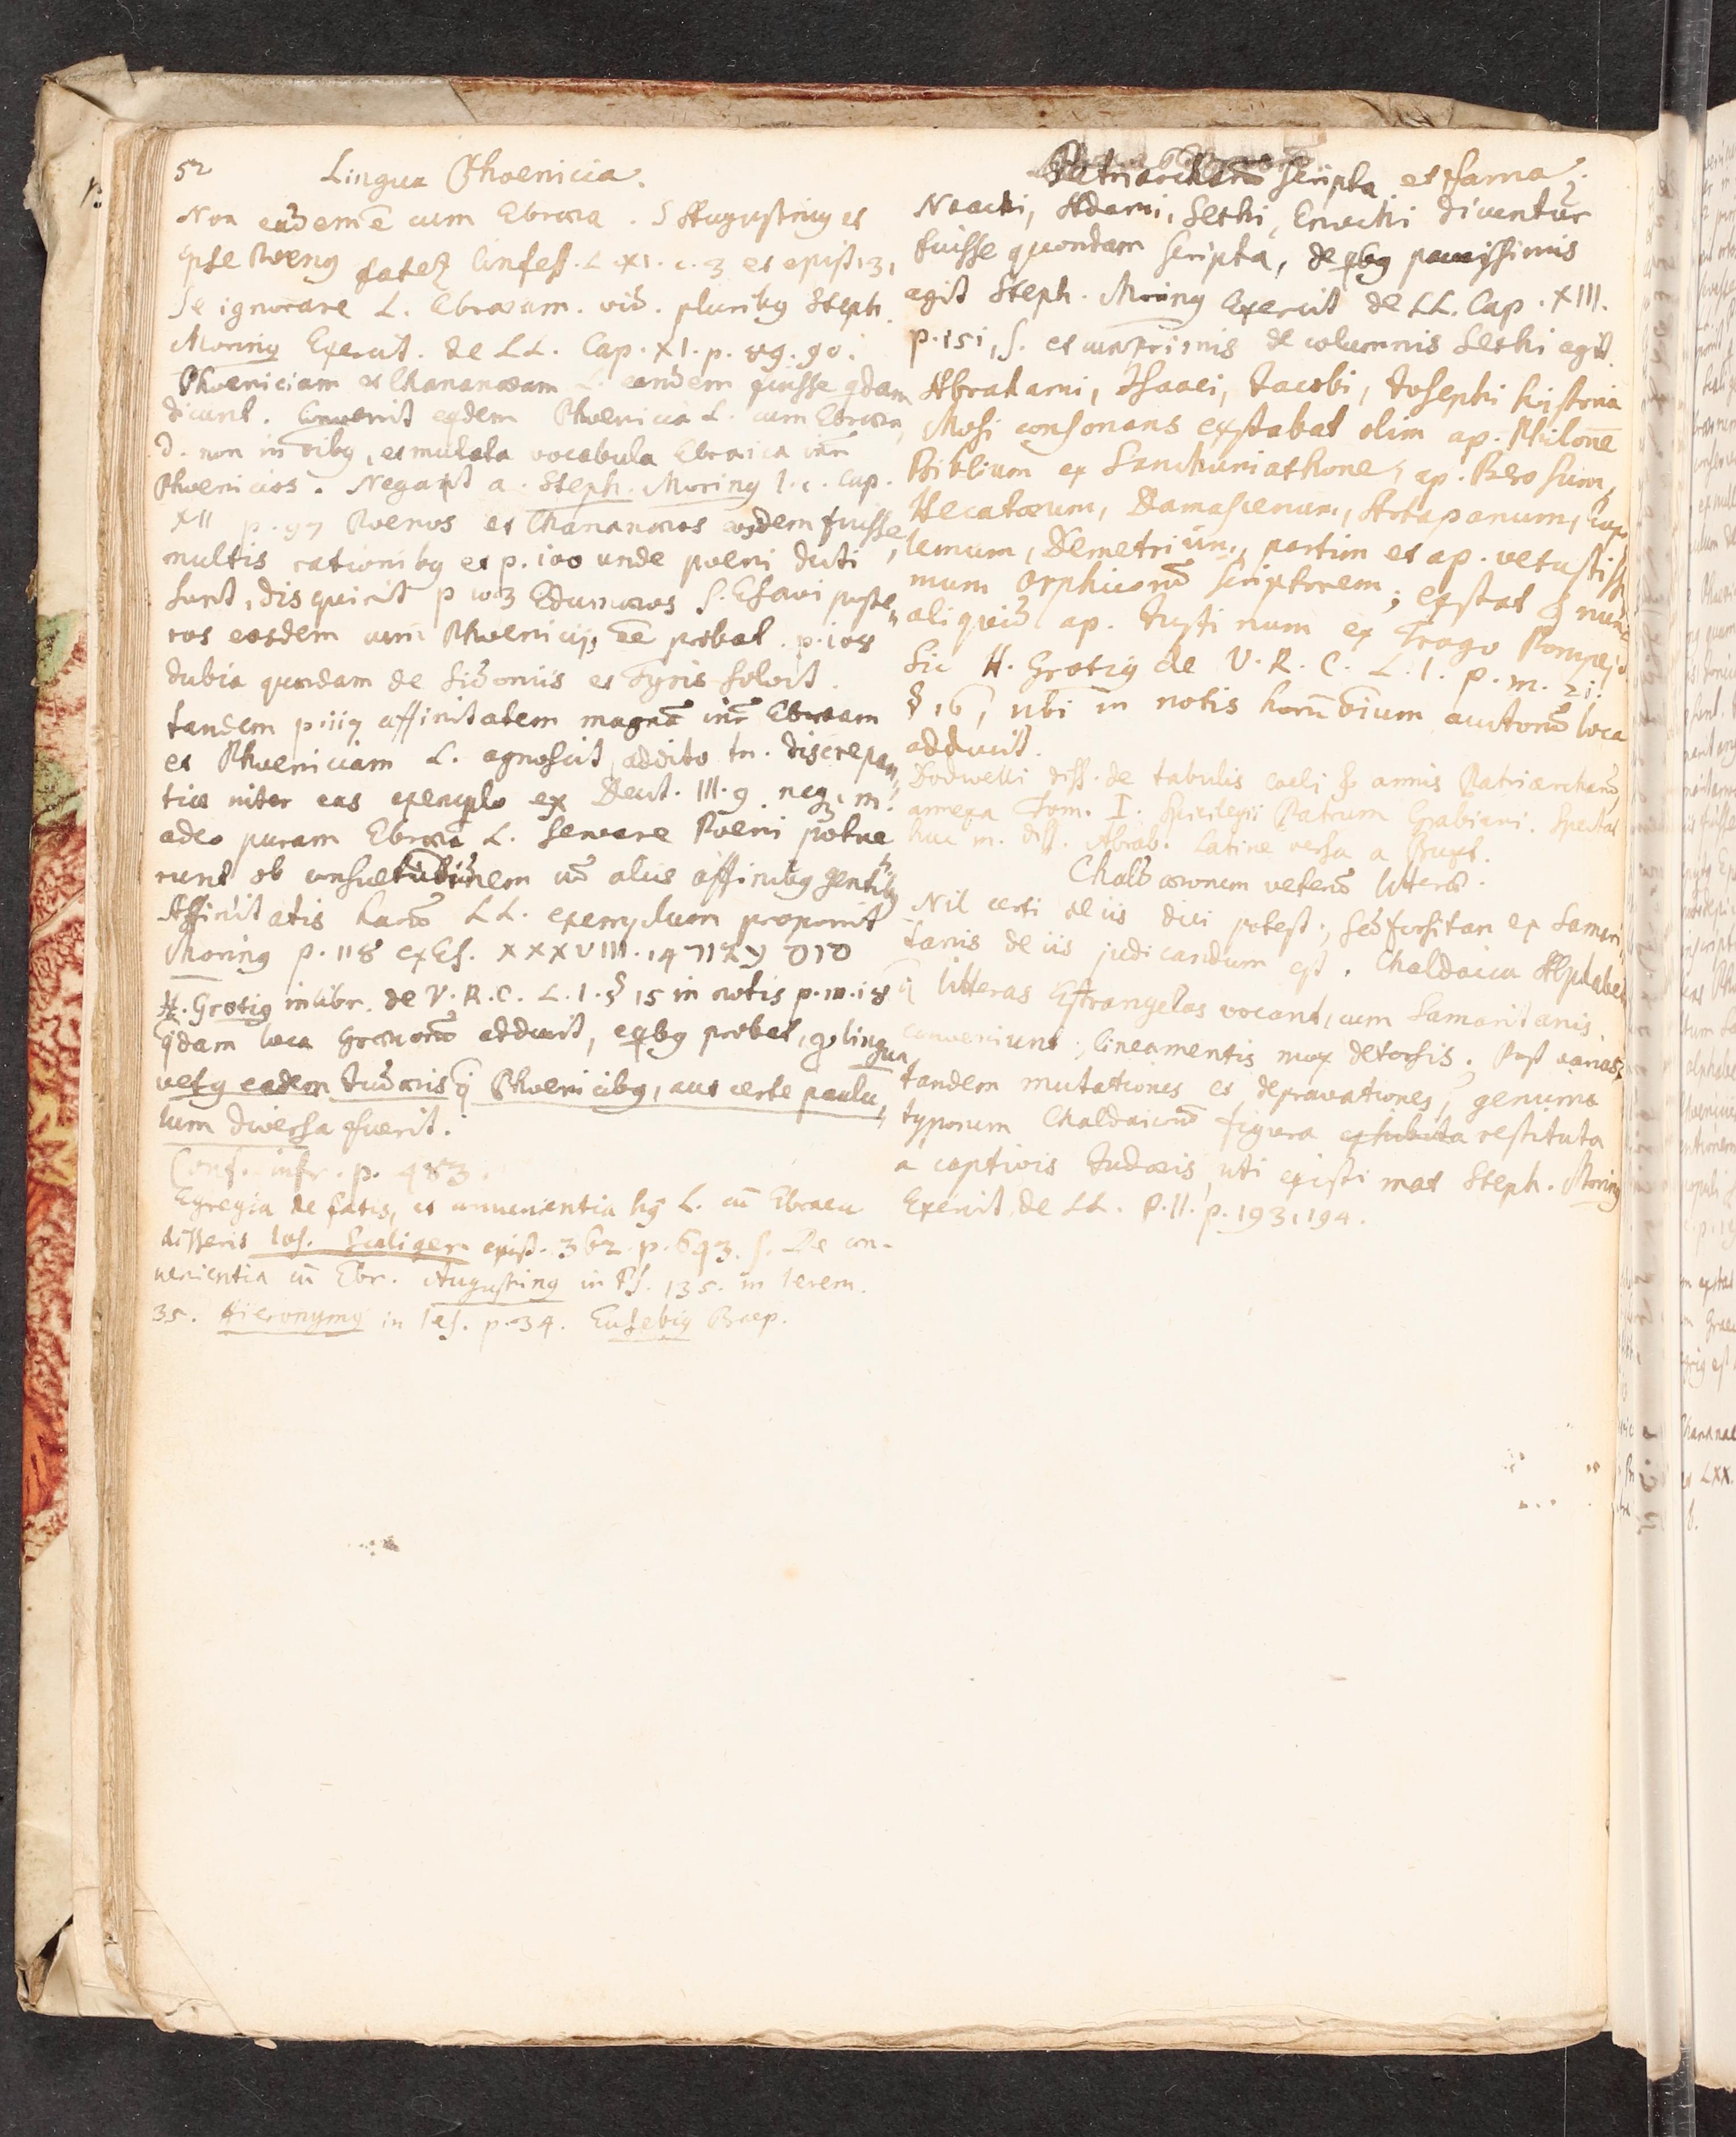 52
Lingua Phoenicia.
Non eadem ē cum Ebræa. S Augustinus et
ipse Poenus fatetur Confess. L. XI. c. 3 et epist. 13,
se ignorare L. Ebræam. vid. pluribus Steph.
Morinus Exercit. de LL. Cap. XI. p. 89. 90.
Phoeniciam et Chananæam L. eandem fuisse qdam
dicunt. Convenit eqdem Phoenicia L. cum Ebræa,
d. non in oībus, et mutata vocabula Ebraica intr
Phoenicios. Negavit a. Steph. Morinus l. c. Cap.
XII p. 97 Poenos et Chananæos eosdem fuisse,
multis rationibus et p. 100 unde poeni dicti
sunt, disquirit p 103 Edumæos s. Esavi poste-
ros eosdem cum Phoeniciis ēē probat. p. 108
dubia quædam de Sidoniis et Tyris solvit.
tandem p. 117 affinitatem magnā intr Ebræam
et Phoeniciam L. agnoscit, addito tn. discrepan-
tiæ inter eas exemplo ex Deut. III. 9. neque m.
adeo puram Ebræā L. servare Poeni potue-
runt ob consuetudinem cū aliis affinibus gentibus
Affinitatis harū LL. exemplum proponit
Morinus p. 118 ex Es. XXXVIII. 14 סוס עגור
H. Grotius in libr. de V. R. C. L. I. § 15 in notis p. m. 18
qdam loca Græcorū adducit, exqbus probat, qd lingua
vetus eadem Judæis q̄ Phoenicibus, aut certe paulu-
lum diversa fuerit.
Conf. infr. p. 483.
Egregia de fatis, et convenientia hus L. cū Ebraea
disseris Ios. Scaliger epist. 362. p. 693. s. De con-
venientia cū Ebr. Augustinus in Ps. 135. in Ierem.
35. Hieronymus in Ies. p. 34. Eusebius Praep.
Patriarcharū scripta et fama.
Noachi, Adami, Sethi, Enochi dicuntur
fuisse quondam scripta, de qbus paucissimis
egit Steph. Morinus Exercit de LL. Cap. XIII.
p. 151, s. et cumprimis de columnis Sethi egit.
Abrahami, Isaaci, Jacobi, Josephi historia
Mosi consonans exstabat olim ap. Philonē
Biblium ex Sanchuniathone, ap. Berosum,
Hecatæum, Damascenum, Artapanum, Eupo-
lemum, Demetrium, partim et ap. vetustissi-
mum Orphicorū scriptorem; exstat & nunc
aliquid ap. Justinum ex Trogo Pompejo.
Sic H. Grotius de V. R. C. L. I. p. m. 21.
§ 16, ubi in notis horū oīum auctorū loca
adducit.
Dodwelli diss. de tabulis coeli & annis Patriarcharū,
annexa Tom. I. Spicilegii Patrum Grabiani. Spectat
huc m. diss. Abrab. Latine versa a Buxt.
Chaldæorum veterū litteræ.
Nil certi de iis dici potest; sed forsitan ex Samari-
tanis de iis judicandum est. Chaldaica Alphabeta
q̄ litteras Estrangelas vocant, cum Samaritanis
conveniunt; lineamentis mox detorsis; Post varias
tandem mutationes et depravationes, genuina
typorum Chaldaicorū figura exhibita restituta
a captivis Judæis, uti existimat Steph. Morinus
Exercit. de LL. P. II. p. 193. 194.